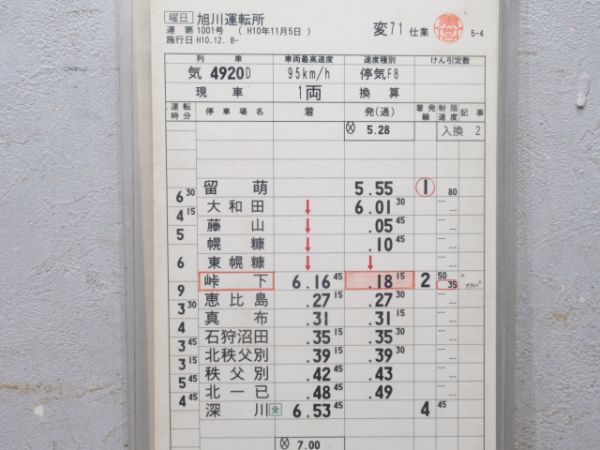 曜日 旭川運転所
運 第1001号 (H10年11月5日)
施行日 H10.12. 8-
変71 仕業
5-4
列車 車両最高速度 速度種別 けん引定数
気 4920D 95km/h 停気F8
現車 1両 換算
運転時分 停車場名 着 発(通) 着発線 制限速度 記事
5.28 入換 2
留萌 5.55 1 80
6 30
大和田 ↓ 6.01 30
4 15
藤山 ↓ .05 45
5
幌糠 ↓ .10 45
6
東幌糠 ↓ ↓
峠下 6.16 45 .18 15 2 50 35
9
恵比島 .27 15 .27 30
3 30
真布 .31 .31 15
3 45
石狩沼田 .35 15 .35 30
3 15
北秩父別 .39 15 .39 30
3 15
秩父別 .42 45 .43
5 45
北一已 .48 45 .49
4 45
深川 全 6.53 45 4 45
7.00